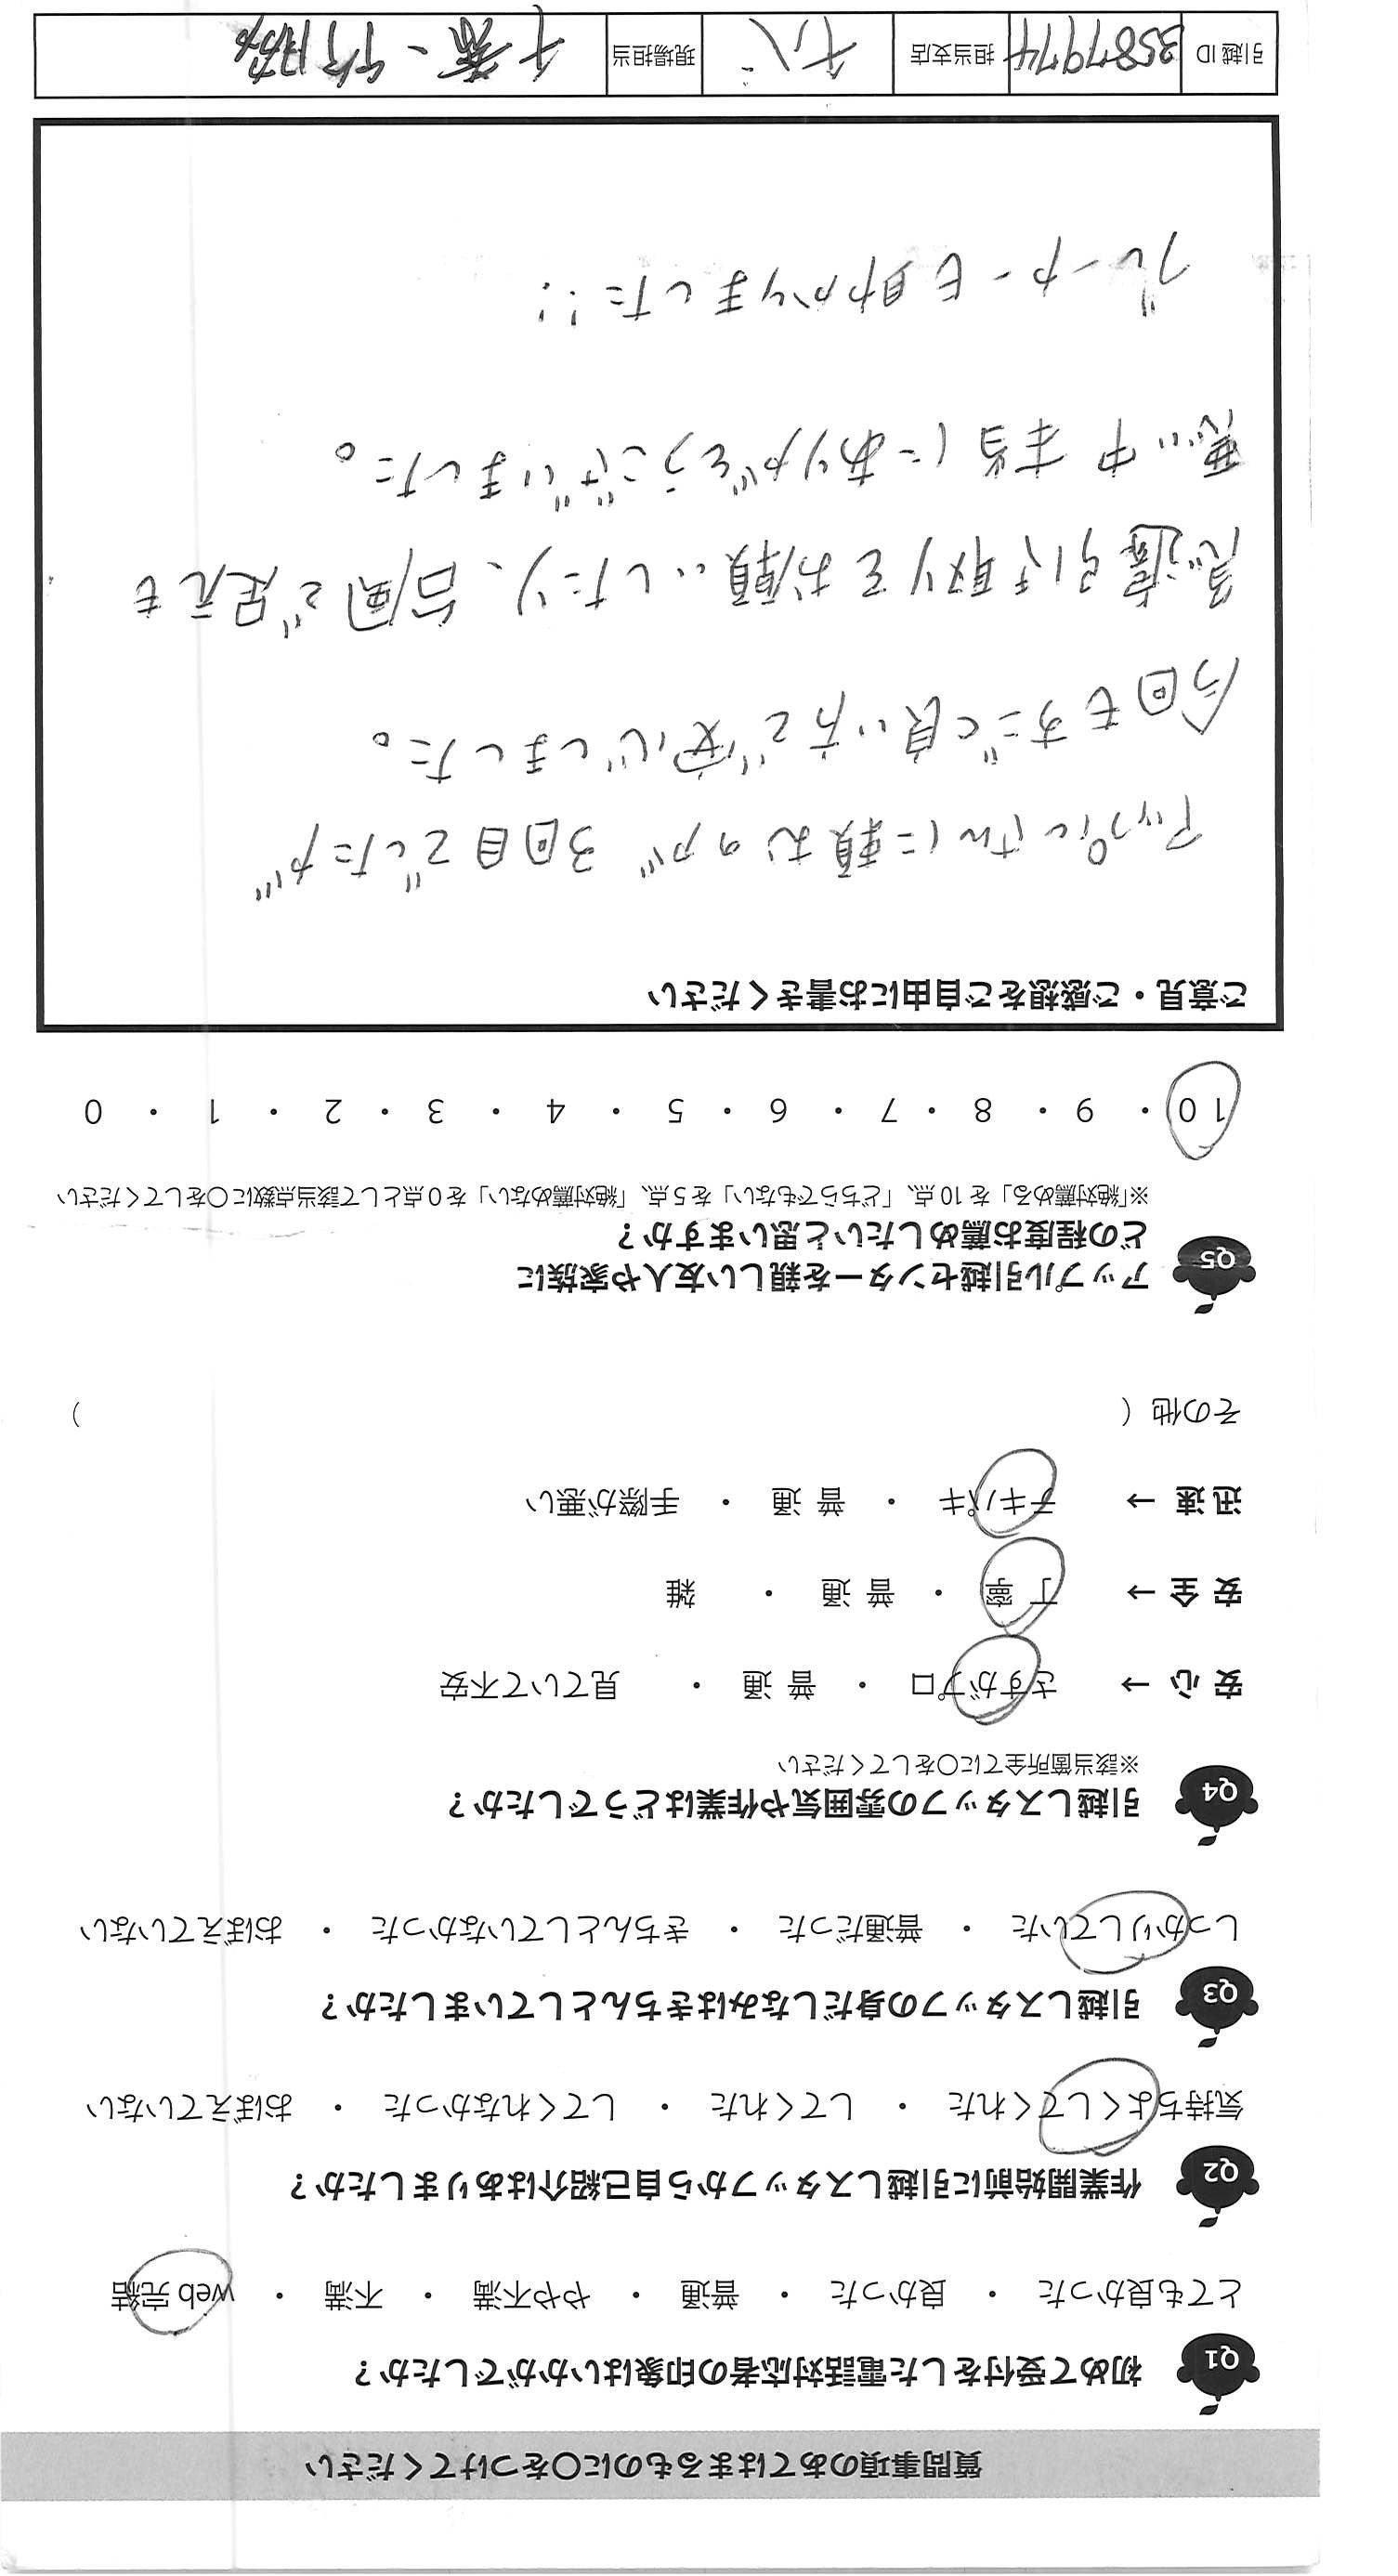 質問事項のあてはまるものに〇をつけてください
Q1 初めて受付をした電話対応者の印象はいかがでしたか?
とても良かった ・ 良かった ・ 普通 ・ やや不満 ・ 不満 ・ web 完結
Q2 作業開始前に引越しスタッフから自己紹介はありましたか?
気持ちよくしてくれた ・ してくれた ・ してくれなかった ・ おぼえていない
Q3 引越しスタッフの身だしなみはきちんとしていましたか?
しっかりしていた ・ 普通だった ・ きちんとしていなかった ・ おぼえていない
Q4 引越しスタッフの雰囲気や作業はどうでしたか?
※該当箇所全てに〇をしてください
安 心 → さすがプロ ・ 普 通 ・ 見ていて不安
安 全 → 丁 寧 ・ 普 通 ・ 雑
迅 速 → テキパキ ・ 普 通 ・ 手際が悪い
その他 ( )
Q5 アップル引越センターを親しい友人や家族に
どの程度お薦めしたいと思いますか?
※「絶対薦める」を 10 点、「どちらでもない」を 5 点、「絶対薦めない」を 0 点として該当点数に〇をしてください
10 ・ 9 ・ 8 ・ 7 ・ 6 ・ 5 ・ 4 ・ 3 ・ 2 ・ 1 ・ 0
ご意見・ご感想をご自由にお書きください
アップルさんに頼むのが 3回目でしたが
今回もすごく良い方で安心しました。
急遽引き取りをお願いしたり、台風で足元も
悪い中 本当にありがとうございました。
ブレーカーも助かりました!!
引越 ID 3587974 担当支店 現場担当